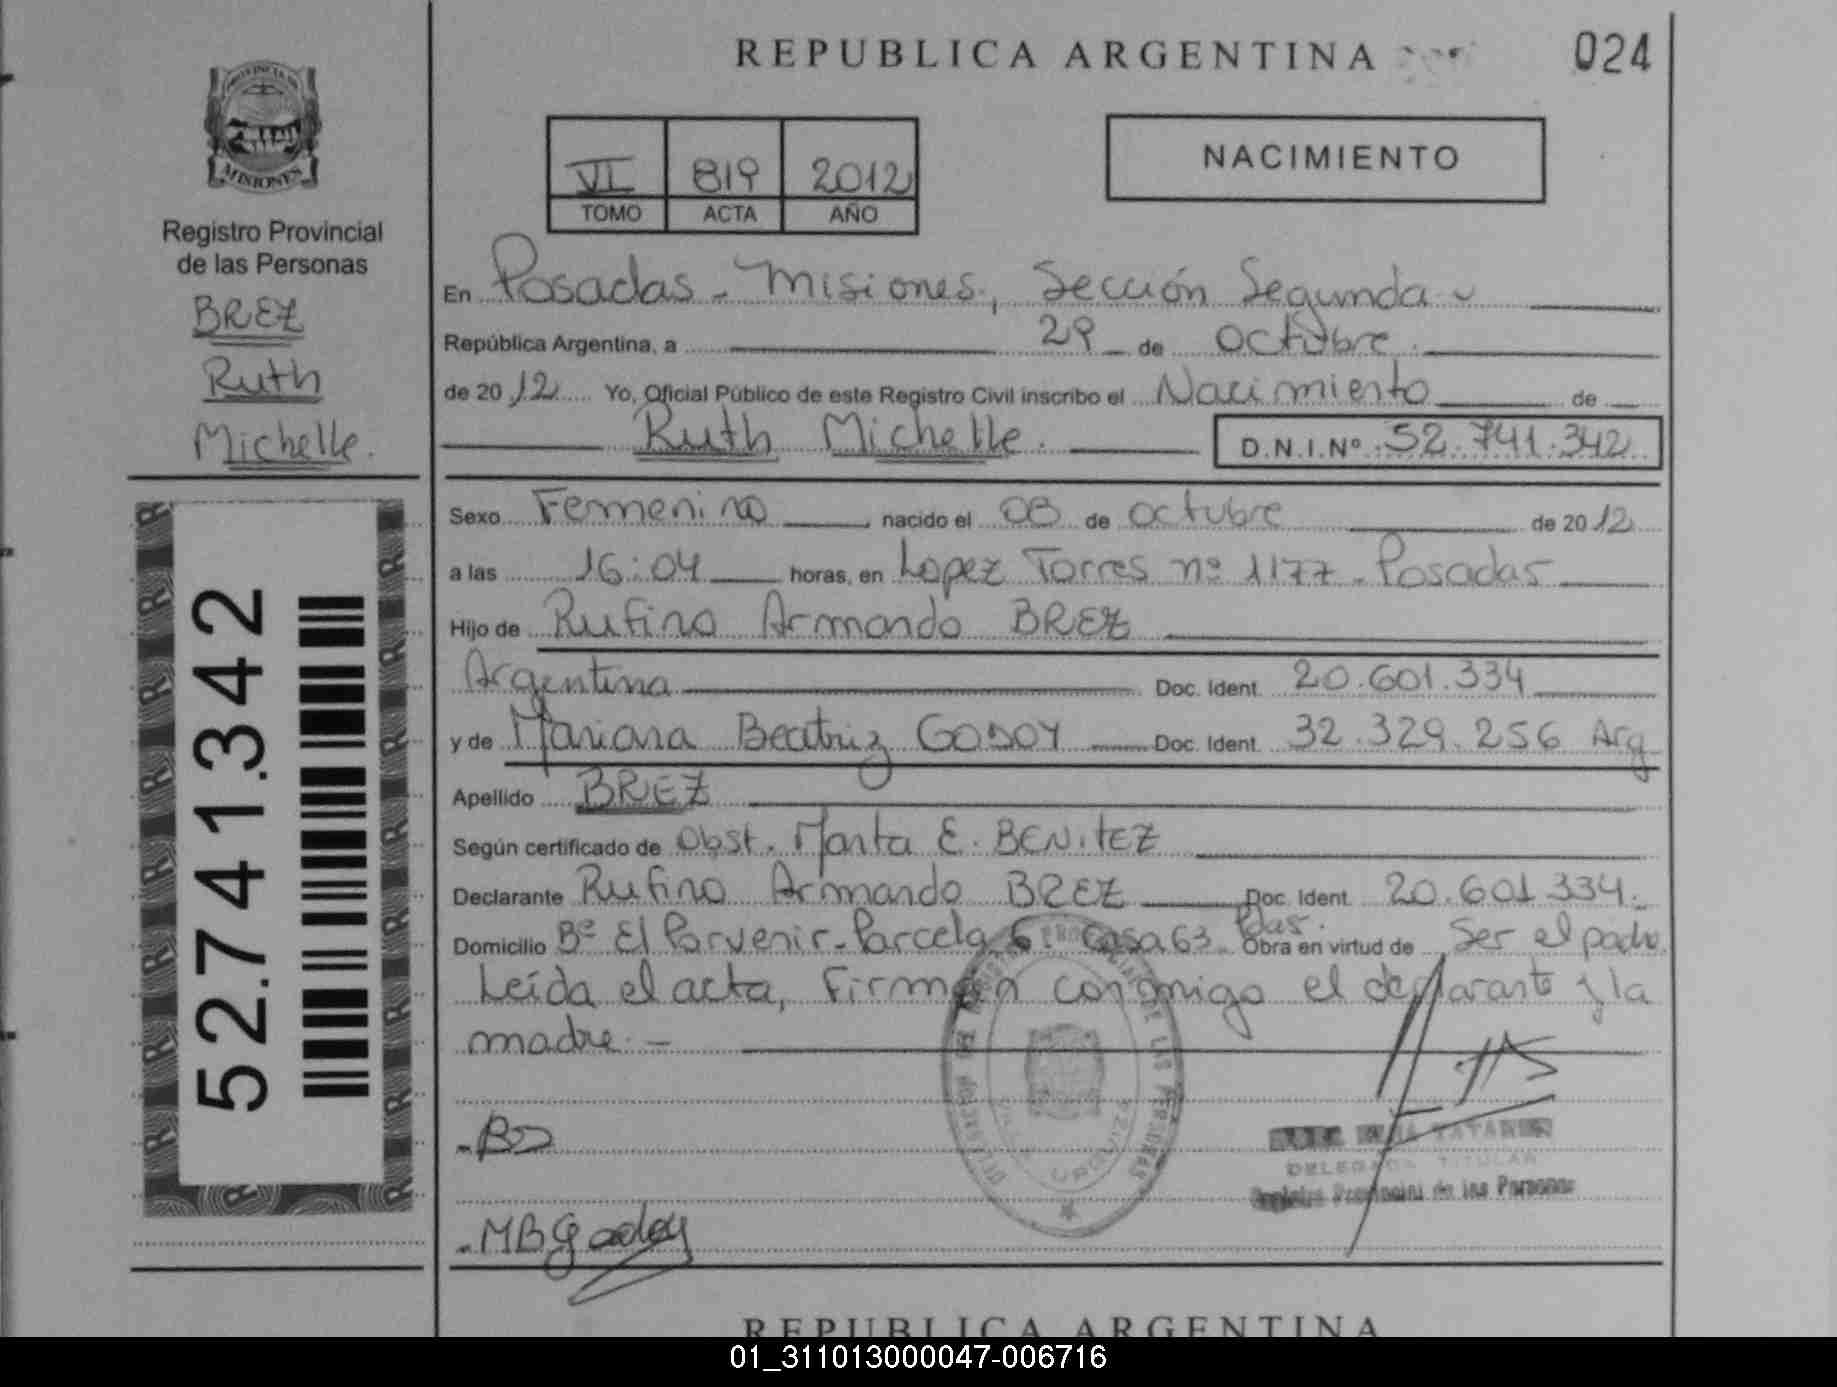 REPUBLICA ARGENTINA
024
PROVINCIA DE
MISIONES
Registro Provincial
de las Personas
BREZ
Ruth
Michelle.
52.741.342
VI 819 2012
TOMO ACTA AÑO
NACIMIENTO
En Posadas - Misiones, Sección Segunda
República Argentina, a 29 de octubre.
de 2012 Yo, Oficial Público de este Registro Civil inscribo el Nacimiento de
Ruth Michelle. D.N.I.Nº 52.741.342
Sexo Femenino nacido el 08 de octubre de 2012
a las 16:04 horas, en Lopez Torres nº 1177 - Posadas
Hijo de Rufino Armando BREZ
Argentina Doc. Ident. 20.601.334
y de Mariana Beatriz GODOY Doc. Ident. 32.329.256 Arg
Apellido BREZ
Según certificado de Obst. Marta E. BENITEZ
Declarante Rufino Armando BREZ Doc. Ident. 20.601.334.
Domicilio Bº El Porvenir - Parcela 6 Casa 63 Pdas. Obra en virtud de Ser el padre.
Leída el acta, Firman conmigo el declarante y la
madre. -
MBGodoy
DELEGADA TITULAR
Registro Provincial de las Personas
REPUBLICA ARGENTINA
01_311013000047-006716